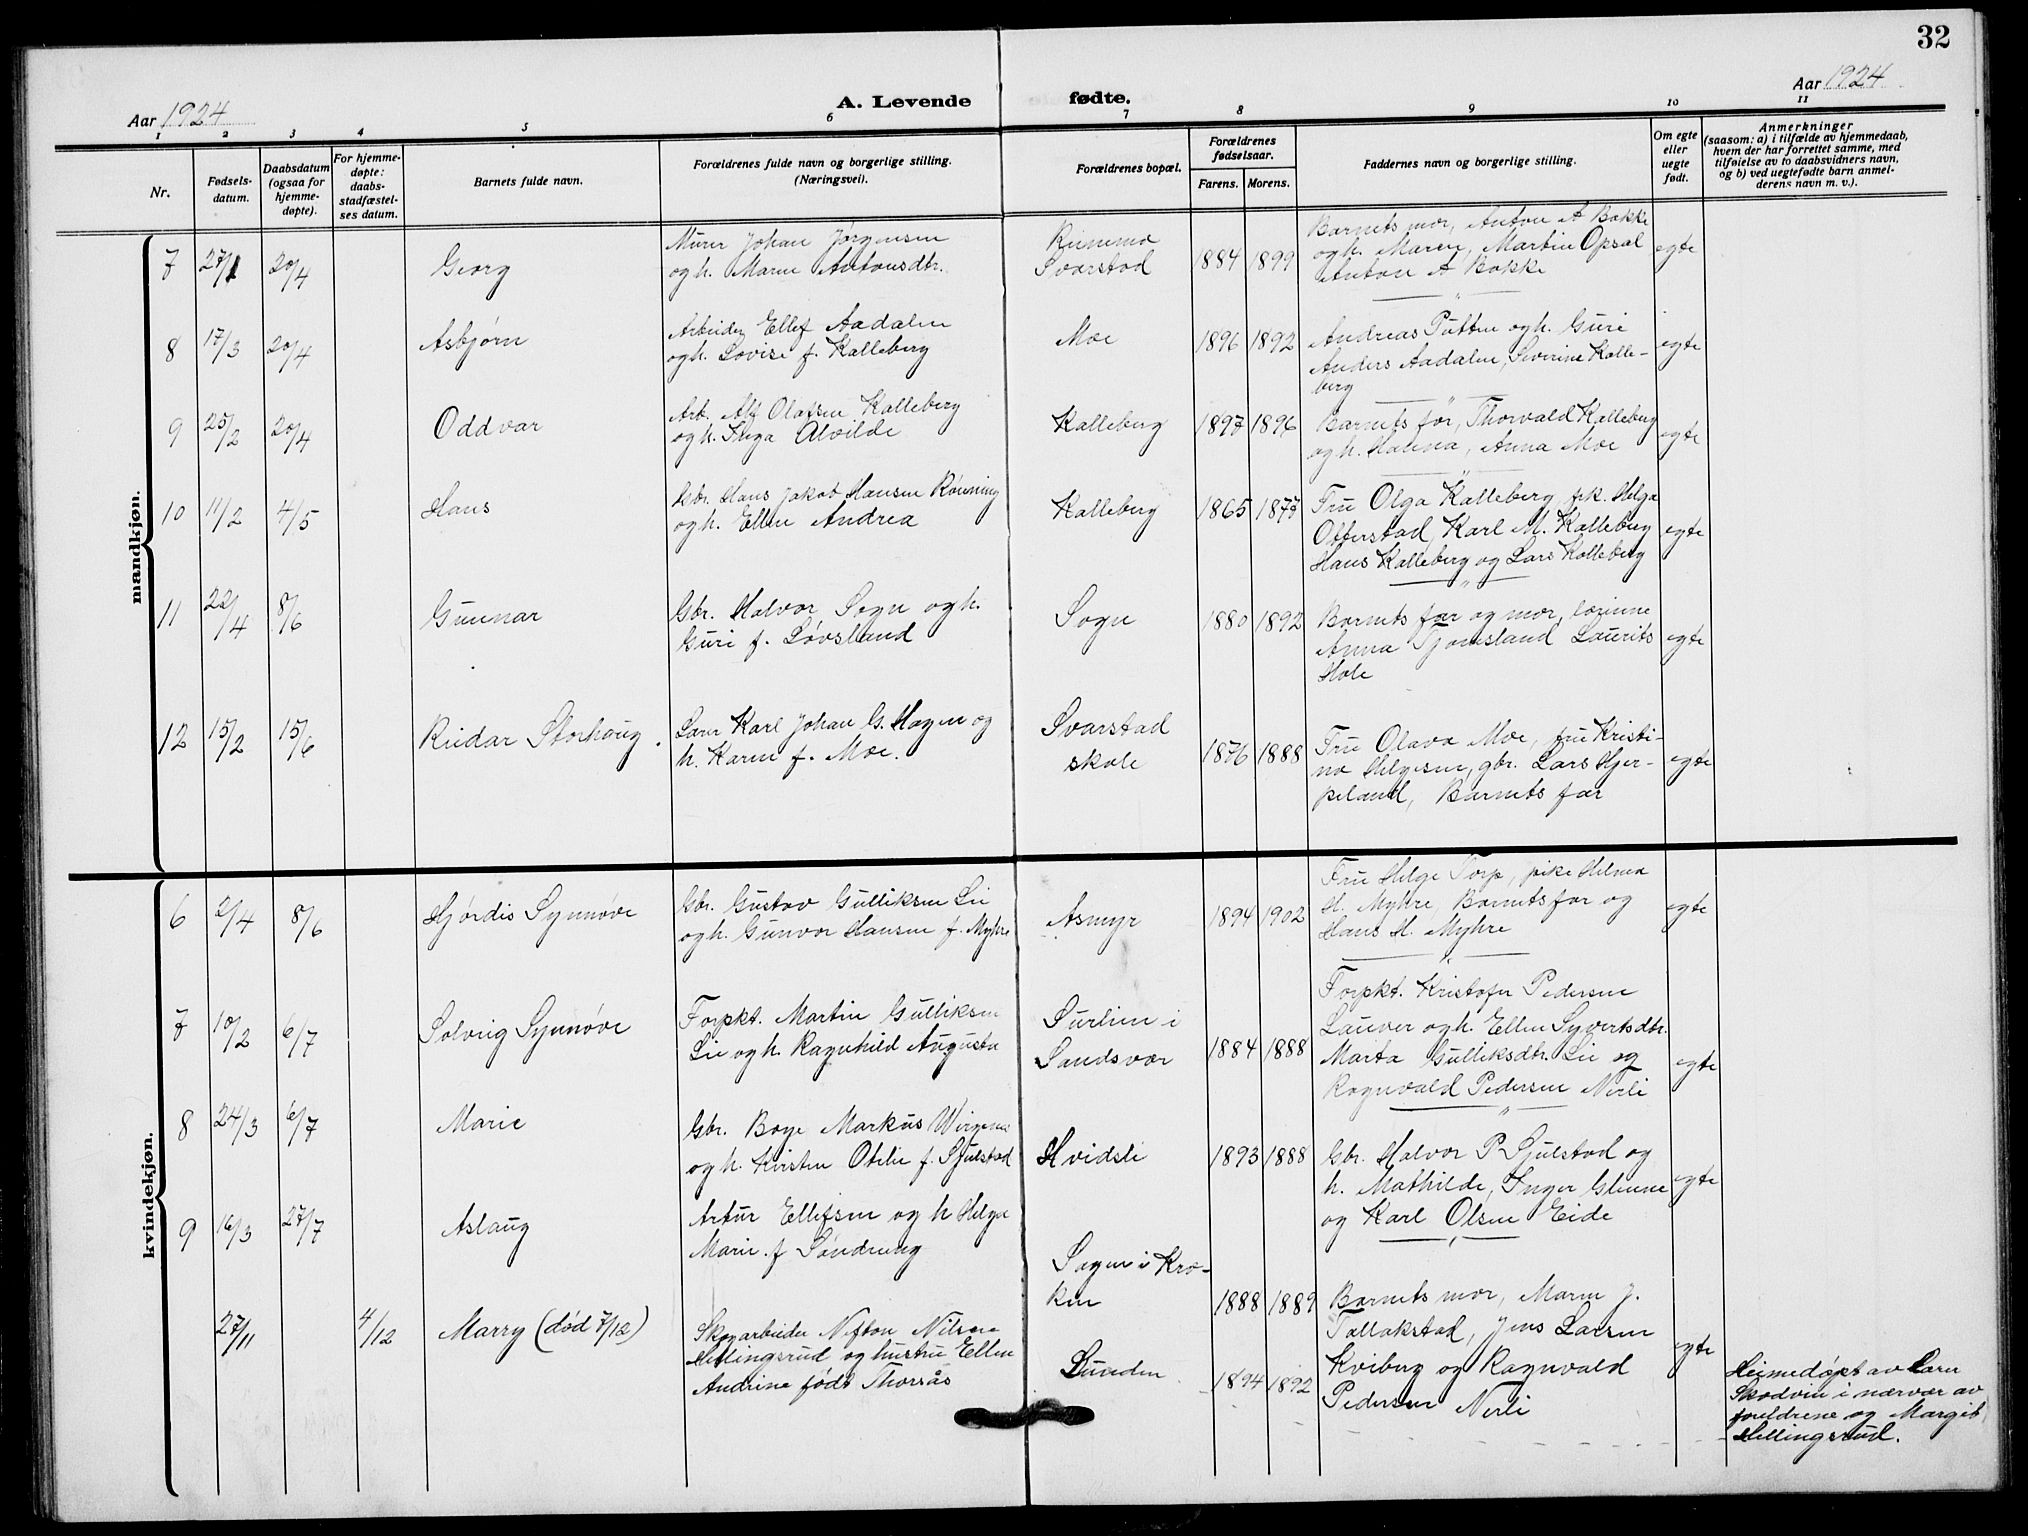 32
Aar 1924
A. Levende fødte.
Aar 1924
1 2 3 4 5 6 7 8 9 10 11
Nr.
Fødsels-
datum.
Daabsdatum
(ogsaa for
hjemme-
døpte).
For hjemme-
døpte:
daabs-
stadfæstel-
ses datum.
Barnets fulde navn.
Forældrenes fulde navn og borgerlige stilling.
(Næringsvei).
Forældrenes bopæl.
Forældrenes
fødselsaar.
Farens. Morens.
Faddernes navn og borgerlige stilling.
Om egte
eller
uegte
født.
Anmerkninger
(saasom: a) i tilfælde av hjemmedaab,
hvem der har forrettet samme, med
tilføielse av to daabsvidners navn,
og b) ved uegtefødte barn anmel-
derens navn m. v.).
mandkjøn.
7 27/1 20/4
Georg
Murer Johan Jørgensen
og h. Maren Antonsdtr.
Svarstad
1884 1899
Barnets mor, Anton A Bakke
og h. Maren, Martin Opsal
Anton A Bakke
egte
8 17/3 20/4
Asbjørn
Arbeider Ellef Aadalen
og h. Lovise f. Kalleberg
Moe
1896 1892
Andreas Putten og h. Guri
Anders Aadalen, Severine Kalle-
berg
egte
9 25/2 20/4
Oddvar
Arb. Alf Olafsen Kalleberg
og h. Inga Alvilde
Kalleberg
1897 1896
Barnets far, Thorvald Kalleberg
og h. Halina, Anna Moe
egte
10 11/2 4/5
Hans
Gbr. Hans Jakob Hansen Rønning
og h. Ellen Andrea
Kalleberg
1865 1877
Fru Olga Kalleberg, frk. Helga
Otterstad, Karl M. Kalleberg
Hans Kalleberg og Lars Kalleberg
egte
11 22/4 8/6
Gunnar
Gbr. Halvor Sogn og h.
Guri f. Løvsland
Sogn
1880 1892
Barnets far og mor, lærinne
Anna Tjomsland Laurits
Hole
egte
12 15/2 15/6
Reidar Storhaug.
Lærer Karl Johan G. Hagen og
h. Karen f. Moe.
Svarstad
skole
1876 1888
Fru Olava Moe, fru Kristi-
na Helgesen, gbr. Lars Hjer-
peland, Barnets far
egte
kvindekjøn.
6 2/4 8/6
Hjørdis Synnøve
Gbr. Gustav Gulliksen Lie
og h. Gunvor Hansen f. Myhre
Asmyr
1894 1902
Fru Helge Torp, pike Helma
H. Myhre, Barnets far og
Hans H. Myhre
egte
7 10/2 6/7
Solveig Synnøve
Forpkt. Martin Gulliksen
Lie og h. Ragnhild Augusta
Surlien i
Sandsvær
1884 1888
Forpkt. Kristofer Pedersen
Lauver og h. Ellen Syvertsdtr.
Marta Gulliksdtr. Lie og
Ragnvald Pedersen Nerli
egte
8 24/3 6/7
Marie
Gbr. Boye Markus Wirgenes
og h. Kirsten Otelie f. Sjulstad
Hvidsli
1893 1888
Gbr. Halvor P Sjulstad og
h. Mathilde, Inger Glenne
og Karl Olsen Eide
egte
9 16/3 27/7
Aslaug
Artur Ellefsen og h Helga
Marie f Søndrung
Sogn i Kro-
ken
1888 1889
Barnets mor, Maren J.
Tollakstad, Jens Larsen
Kviberg og Ragnvald
Pedersen Nerli
egte
27/11 4/12
Marry (død 7/12)
Skogarbeider Nifton Nilsen
Hellingsrud og hustru Ellen
Andrine født Thorsås
Lunden
1894 1892
Heimedøpt av Lærer
Skodvin i nærvær av
foreldrene og Margit
Hellingsrud.